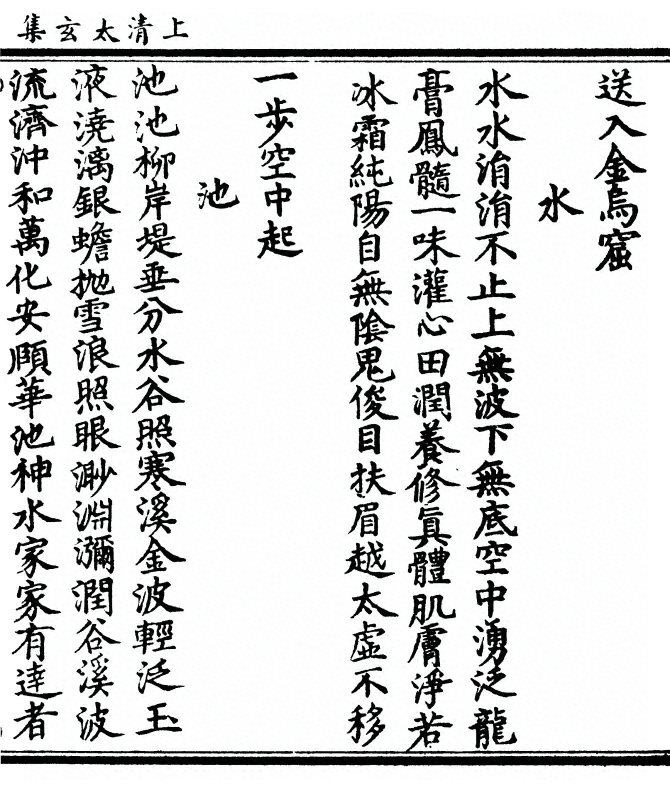 上清太玄集
送入金烏窟
水
水水涓涓不止上無波下無底空中湧泛龍
膏鳳髓一味灌心田潤養修眞體肌膚淨若
冰霜純陽自無陰鬼俊目扶眉越太虛不移
一步空中起
池
池池柳岸堤垂分水谷照寒溪金波輕泛玉
液澆漓銀蟾抛雪浪照眼渺淵瀰潤谷溪波
流濟沖和萬化安頤華池神水家家有達者